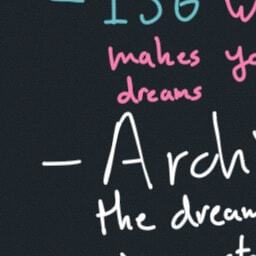 - ISG W
makes yo
dreams
- Arch
the dream